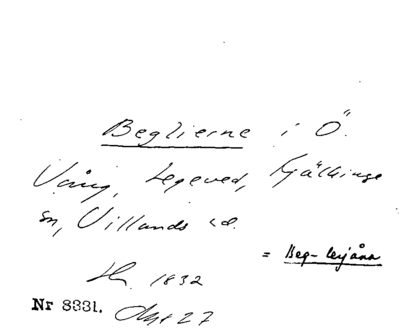 Beglierne i Ö.
Vång, Legeved, Fjälkinge
sn, Villands hd.
= Beg-lerjåna
Nr 8331.
1832
27